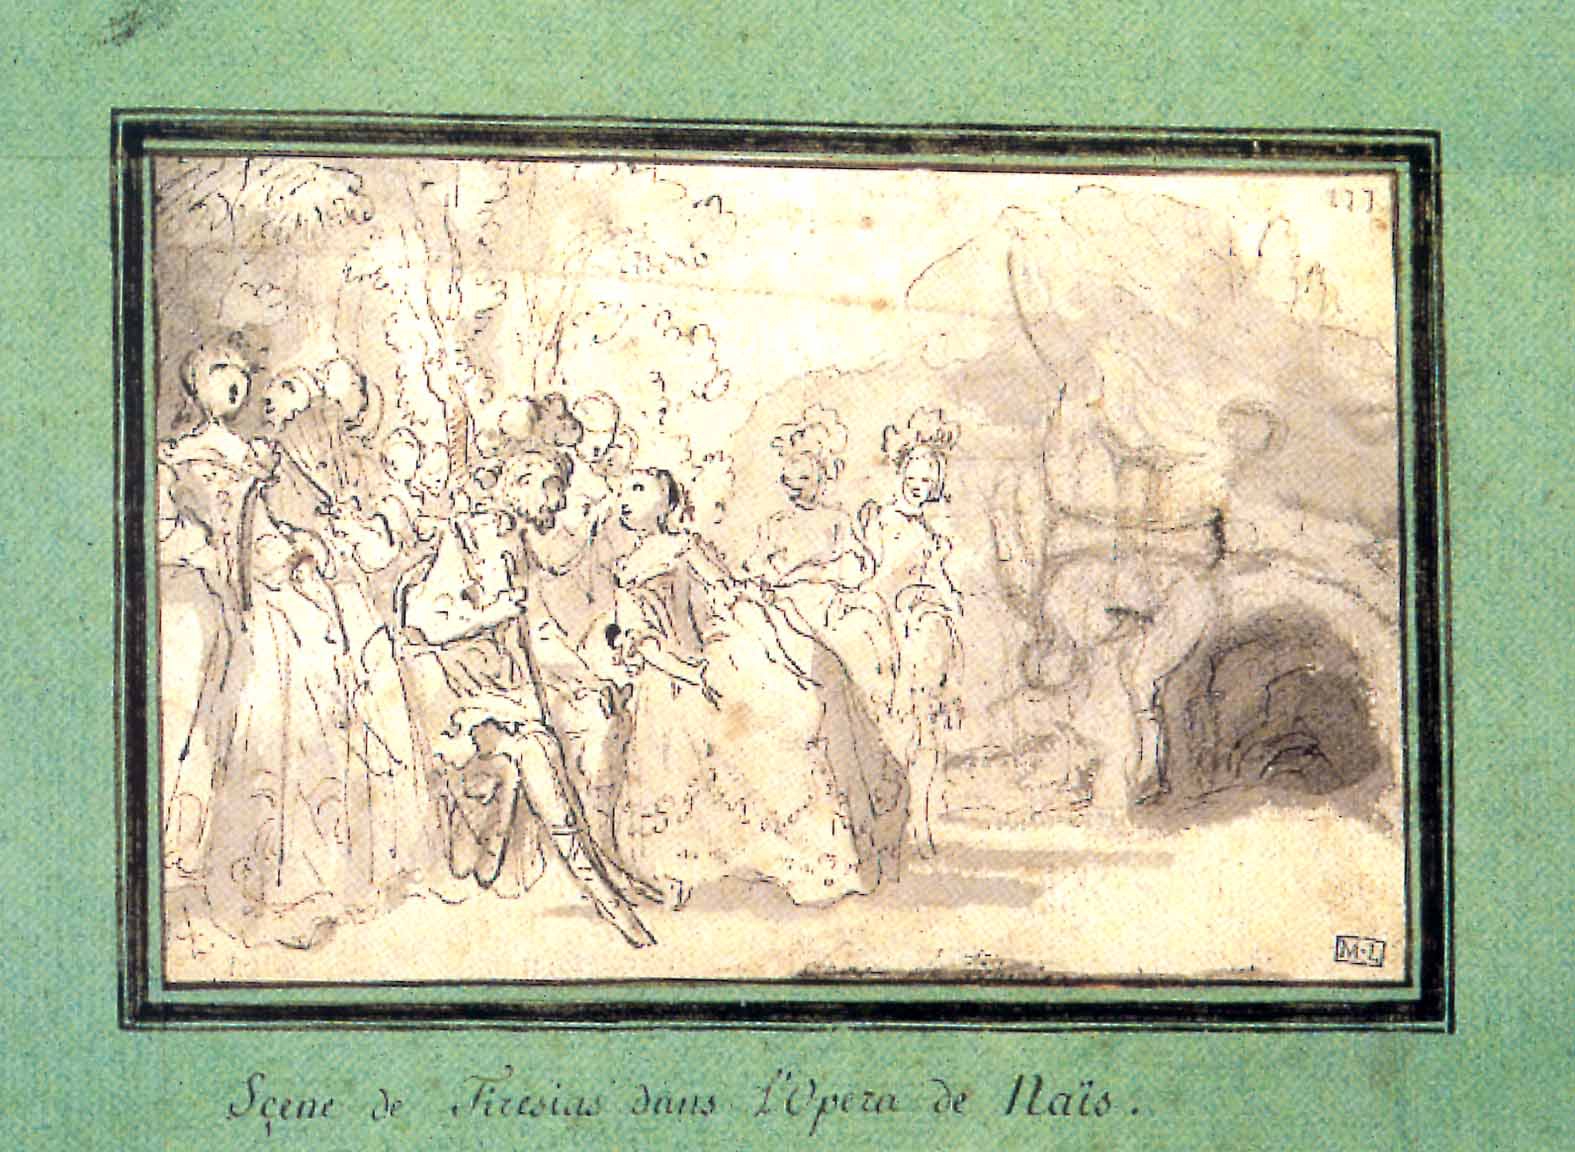 177
M·L
Sçene de Tiresias dans L'Opera de Naïs.